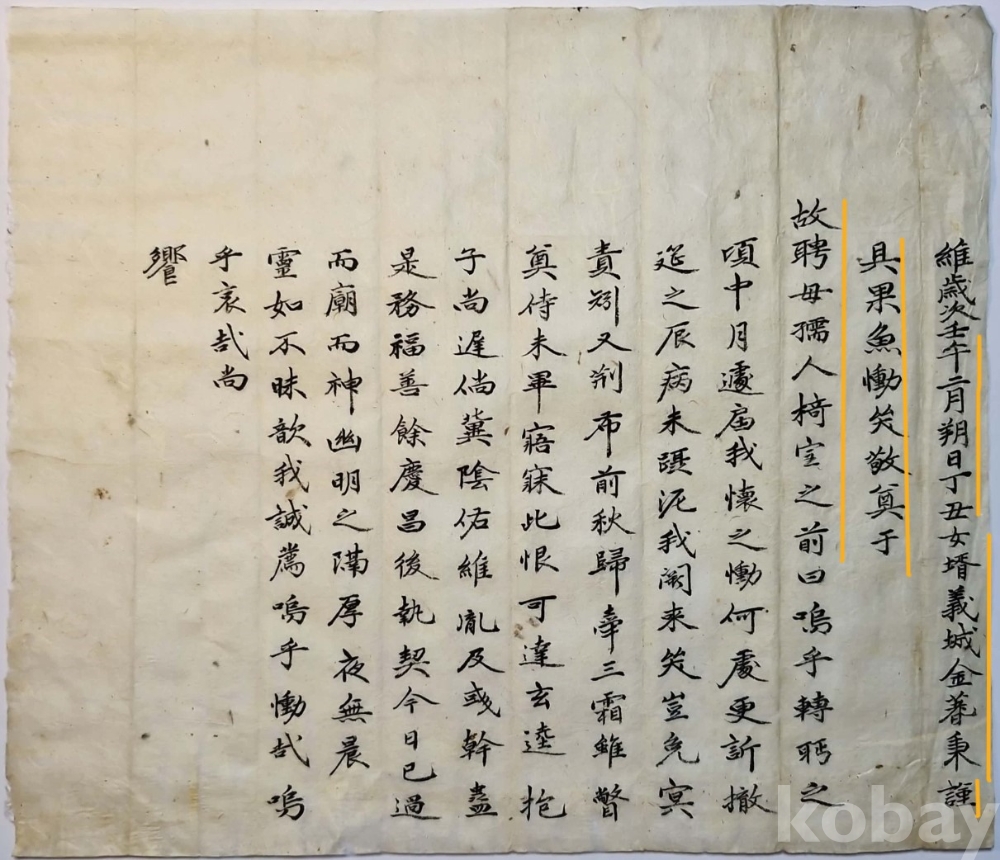 維歲次壬午二月朔日丁丑女壻義城金蓍秉謹
具果魚慟哭敬奠于
故聘母孺人椅室之前曰嗚乎轉眄之
頃中月遽屆我懷之慟何處更訴撤
筵之辰病未躡泥我闕来哭豈免冥
責矧又剏布前秋歸牽三霜雖瞥
奠侍未畢寤寐此恨可達玄逵抱
子尚遲倘冀陰佑維胤及彧幹蠱
是務福善餘慶昌後執契今日已過
而廟而神幽明之隔厚夜無晨
靈如不昧歆我誠薦嗚乎慟哉嗚
乎哀哉尚
饗
kobay